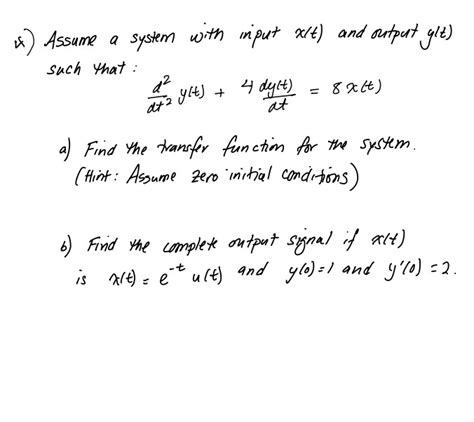 Assume a system with input x(t) and output y(t)
such that :
d²/dt² y(t) + 4 dy(t)/dt = 8x(t)
a) Find the transfer function for the system.
(Hint: Assume zero initial conditions)
b) Find the complete output signal if x(t)
is x(t) = e^-t u(t) and y(0)=1 and y'(0) = 2.